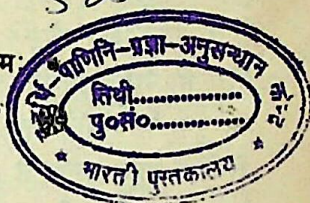 म:
पाणिनि-प्रज्ञा-अनुसन्धान
तिथी
पु०सं०
* भारती पुस्तकालय *